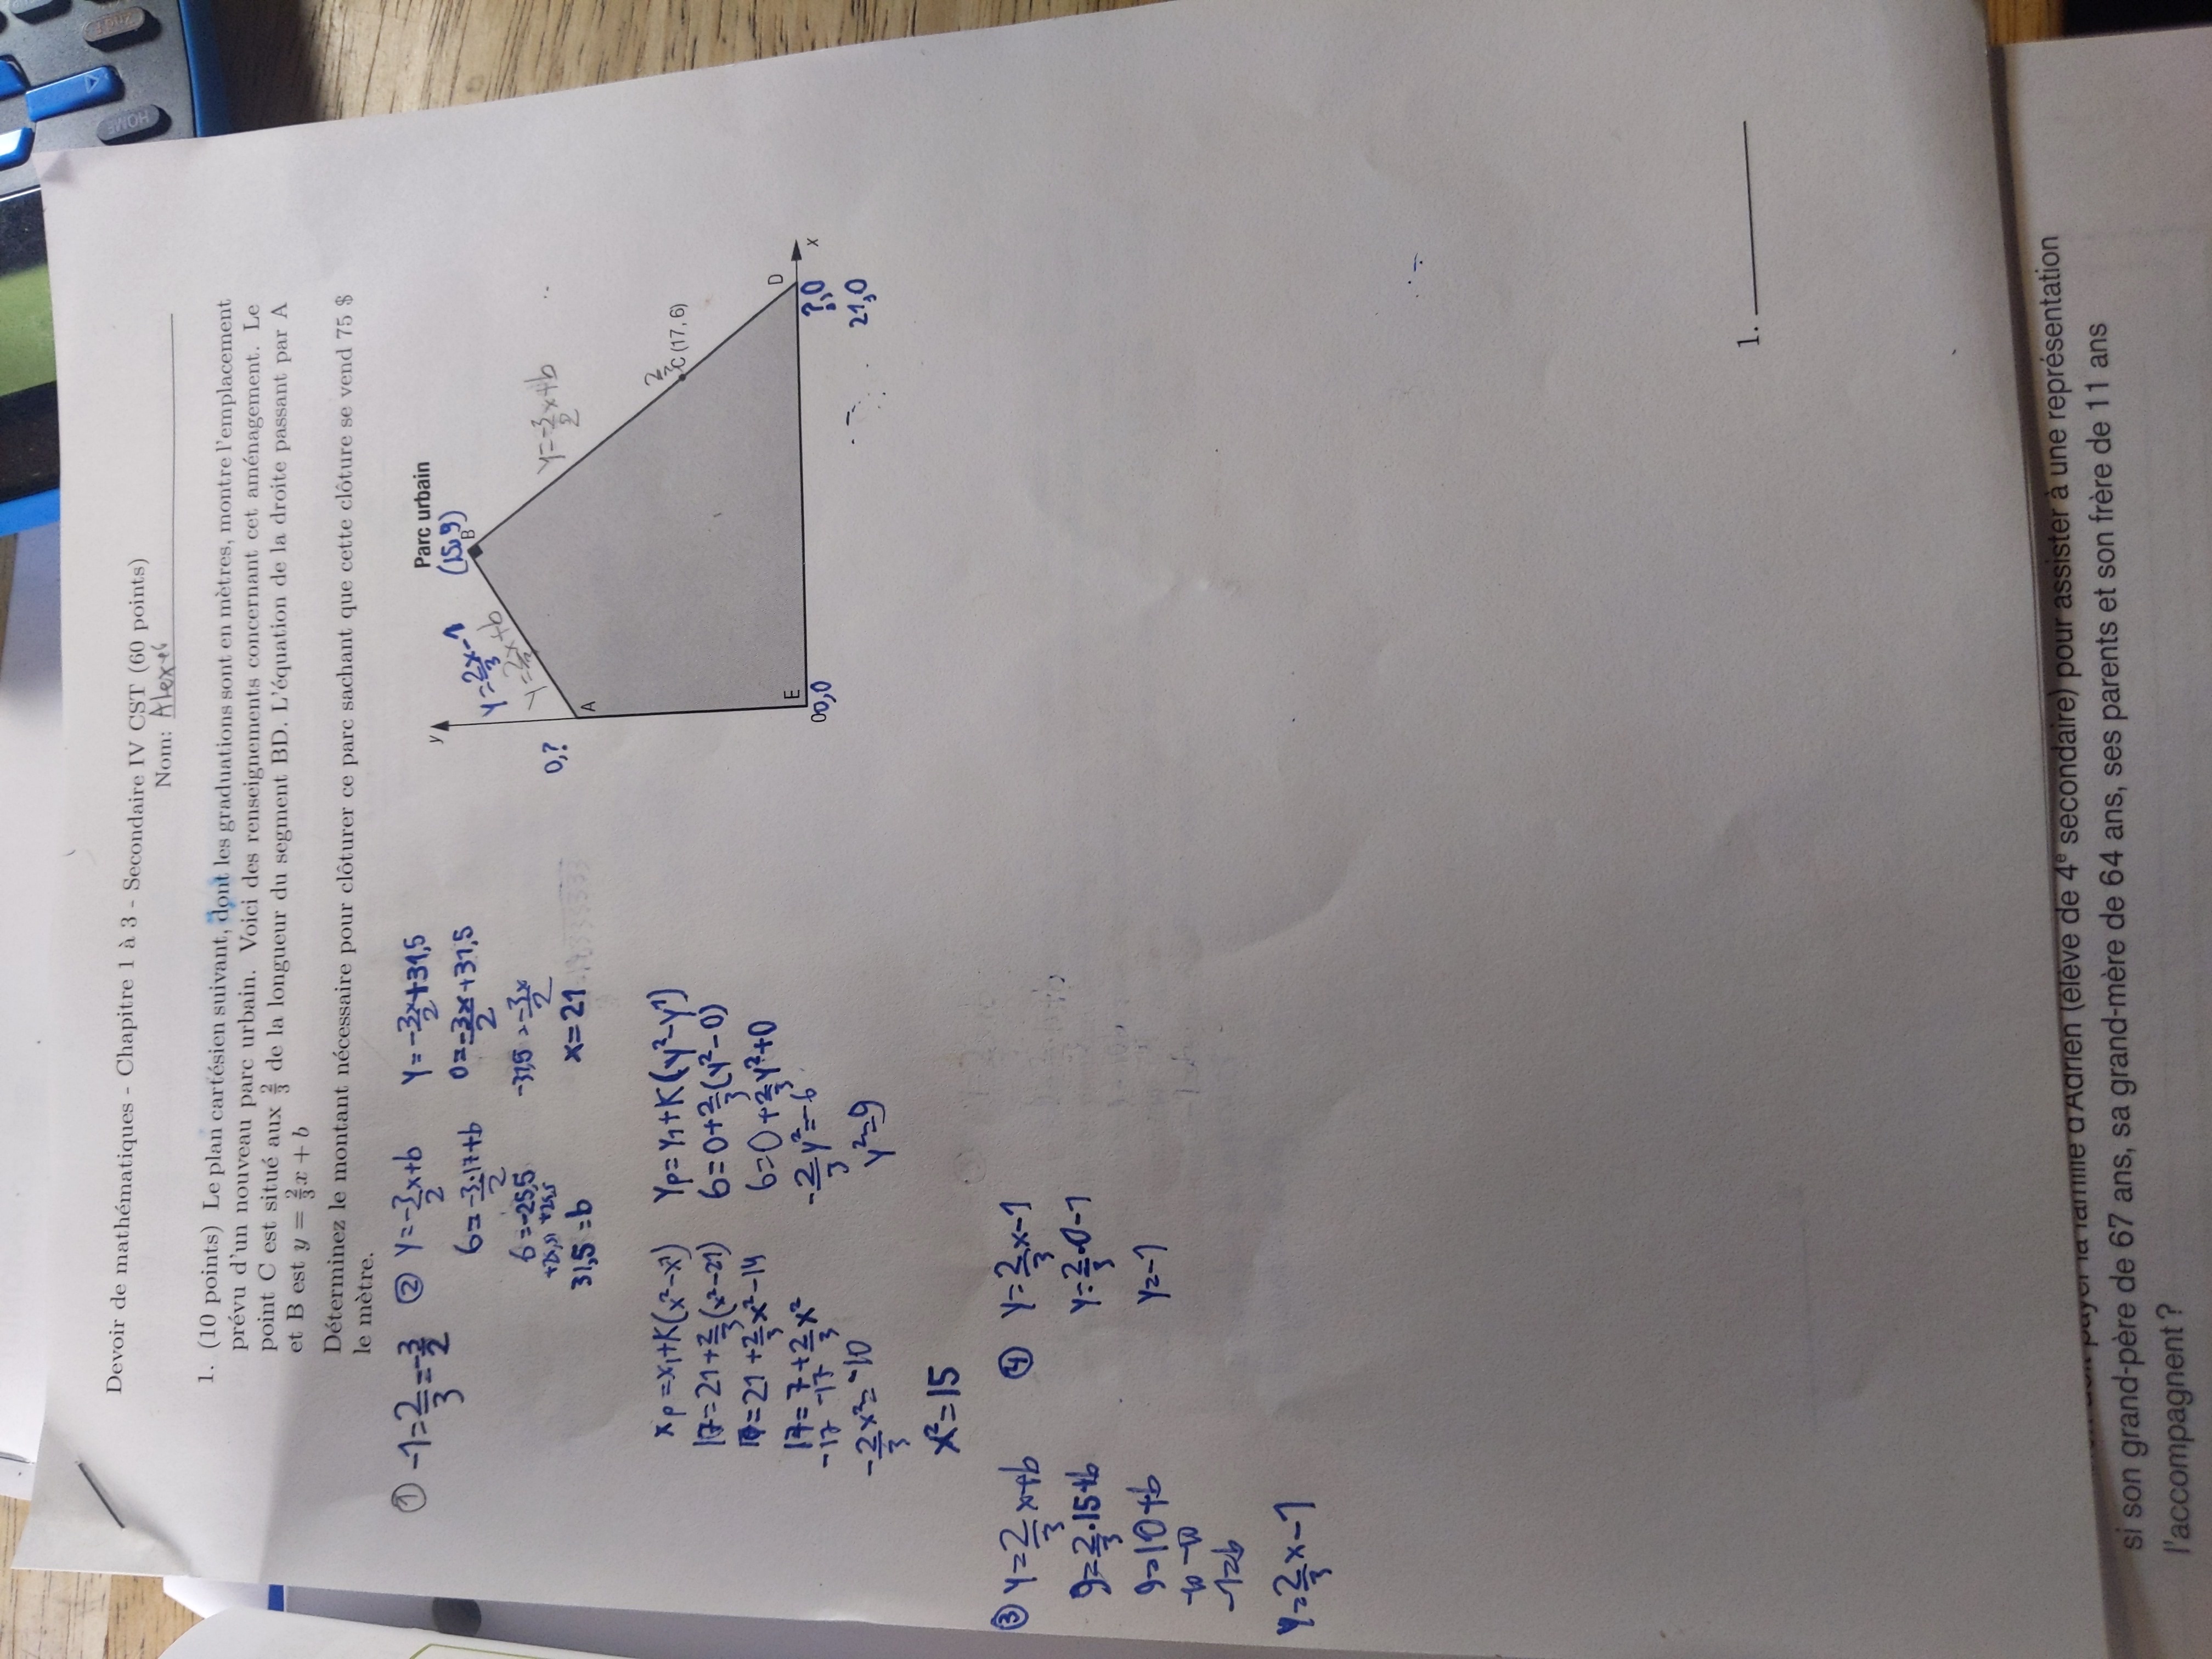 Devoir de mathématiques - Chapitre 1 à 3 - Secondaire IV CST (60 points)
Nom: Alexei
1. (10 points) Le plan cartésien suivant, dont les graduations sont en mètres, montre l'emplacement
prévu d'un nouveau parc urbain. Voici des renseignements concernant cet aménagement. Le
point C est situé aux 2/3 de la longueur du segment BD. L'équation de la droite passant par A
et B est y = 2/3 x + b
Déterminez le montant nécessaire pour clôturer ce parc sachant que cette clôture se vend 75 $
le mètre.
① -1 = 2/3 = -3/2
② y = -3/2 x + b
6 = -3/2 · 17 + b
6 = -25,5
+25,5 +25,5
31,5 = b
y = -3/2 x + 31,5
0 = -3x/2 + 31,5
-31,5 = -3x/2
x = 21
xp = x1 + K(x² - x¹)
17 = 21 + 2/3 (x² - 21)
17 = 21 + 2/3 x² - 14
17 = 7 + 2/3 x²
-17 -17
-2/3 x² = -10
x² = 15
Yp = Y1 + K(y² - y¹)
6 = 0 + 2/3 (y² - 0)
6 = 0 + 2/3 y² + 0
-2/3 y² = -6
y² = 9
③ y = 2/3 x + b
9 = 2/3 · 15 + b
9 = 10 + b
-10 -10
-1 = b
y = 2/3 x - 1
④ y = 2/3 x - 1
y = 2/3 · 0 - 1
y = -1
Parc urbain
(15,9)
B
y
y = 2/3 x - 1
y = 2/3 x + b
y = -3/2 x + b
2/3
C (17, 6)
A
0,?
E
0
0,0
D
x
?,0
21,0
1.
si son grand-père de 67 ans, sa grand-mère de 64 ans, ses parents et son frère de 11 ans
l'accompagnent ?